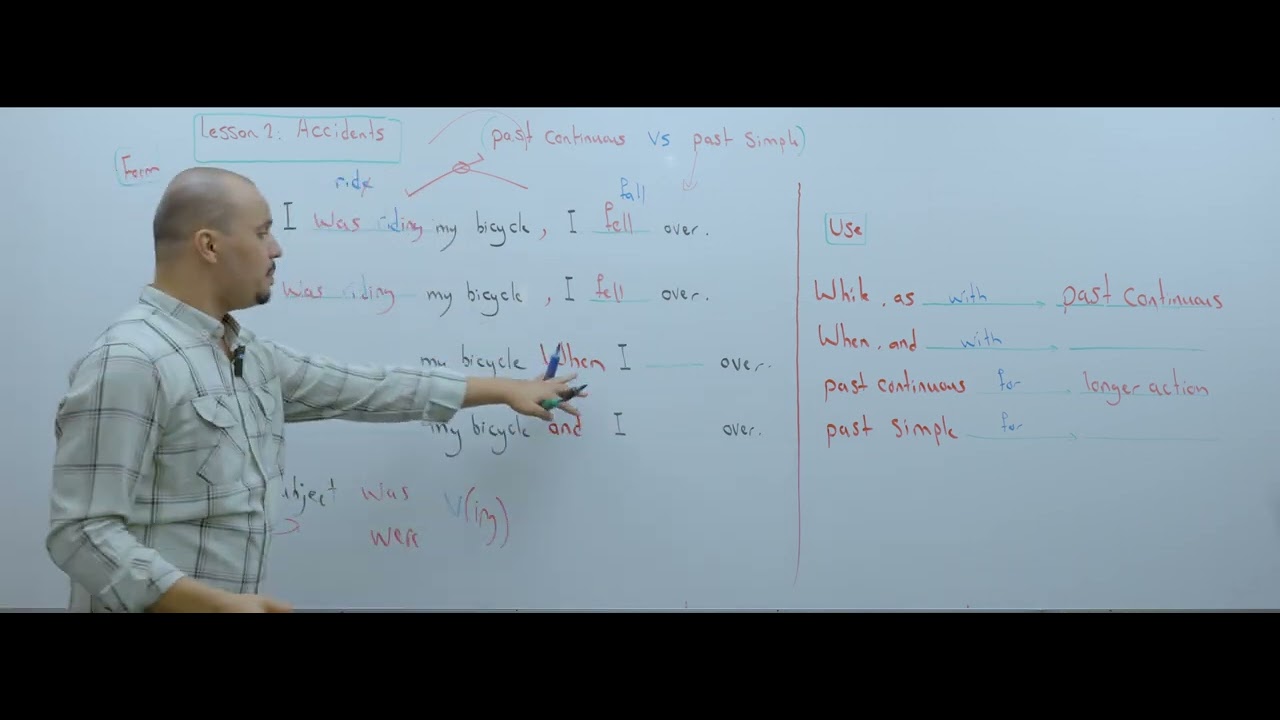 Lesson 2: Accidents (past continuous vs past simple)
Form
ride fall
I was riding my bicycle, I fell over.
was riding my bicycle, I fell over.
my bicycle When I ____ over.
my bicycle and I over.
subject was V(ing)
were
Use
While, as with past continuous
When, and with
past continuous for longer action
past simple for